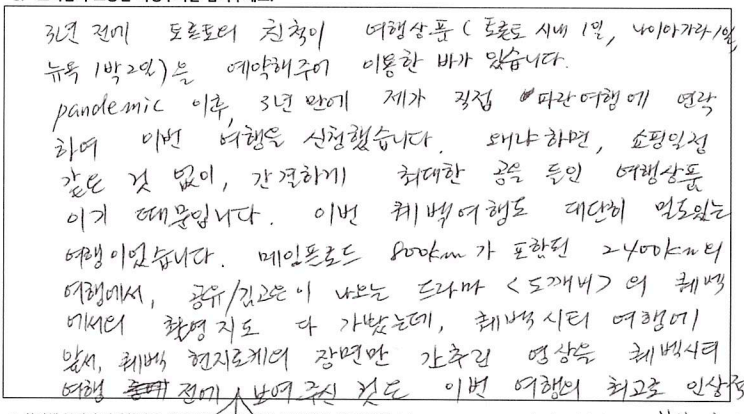 3년 전에 토론토의 친척이 여행상품(토론토 시내 1일, 나이아가라 1일,
뉴욕 1박2일)을 예약해주어 이용한 바가 있습니다.
pandemic 이후, 3년 만에 제가 직접 파란여행에 연락
하여 이번 여행을 신청했습니다. 왜냐하면, 쇼핑일정
같은 것 없이, 간결하게 최대한 공을 들인 여행상품
이기 때문입니다. 이번 퀘벡여행도 대단히 밀도있는
여행이었습니다. 메이플로드 800km가 포함된 2400km의
여행에서, 공유/김고은이 나오는 드라마 <도깨비>의 퀘벡
에서의 촬영지도 다 가봤는데, 퀘벡시티 여행에
앞서, 퀘벡 현지로케의 장면만 간추린 영상을 퀘벡시티
여행 전에 보여주신 것도 이번 여행의 최고로 인상적